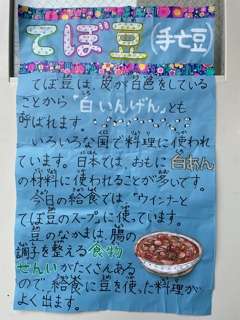 てぼ豆(手亡豆)
てぼ豆は、皮が白色をしている
ことから"白いんげん"とも
呼ばれます。
いろいろな国で料理に使われ
ています。日本では、おもに白あん
の材料に使われることが多いです。
今日の給食では、"ウインナーと
てぼ豆のスープ"に使っています。
豆のなかまは、腸の
調子を整える食物
せんいがたくさんある
ので、給食に豆を使った料理が
よく出ます。